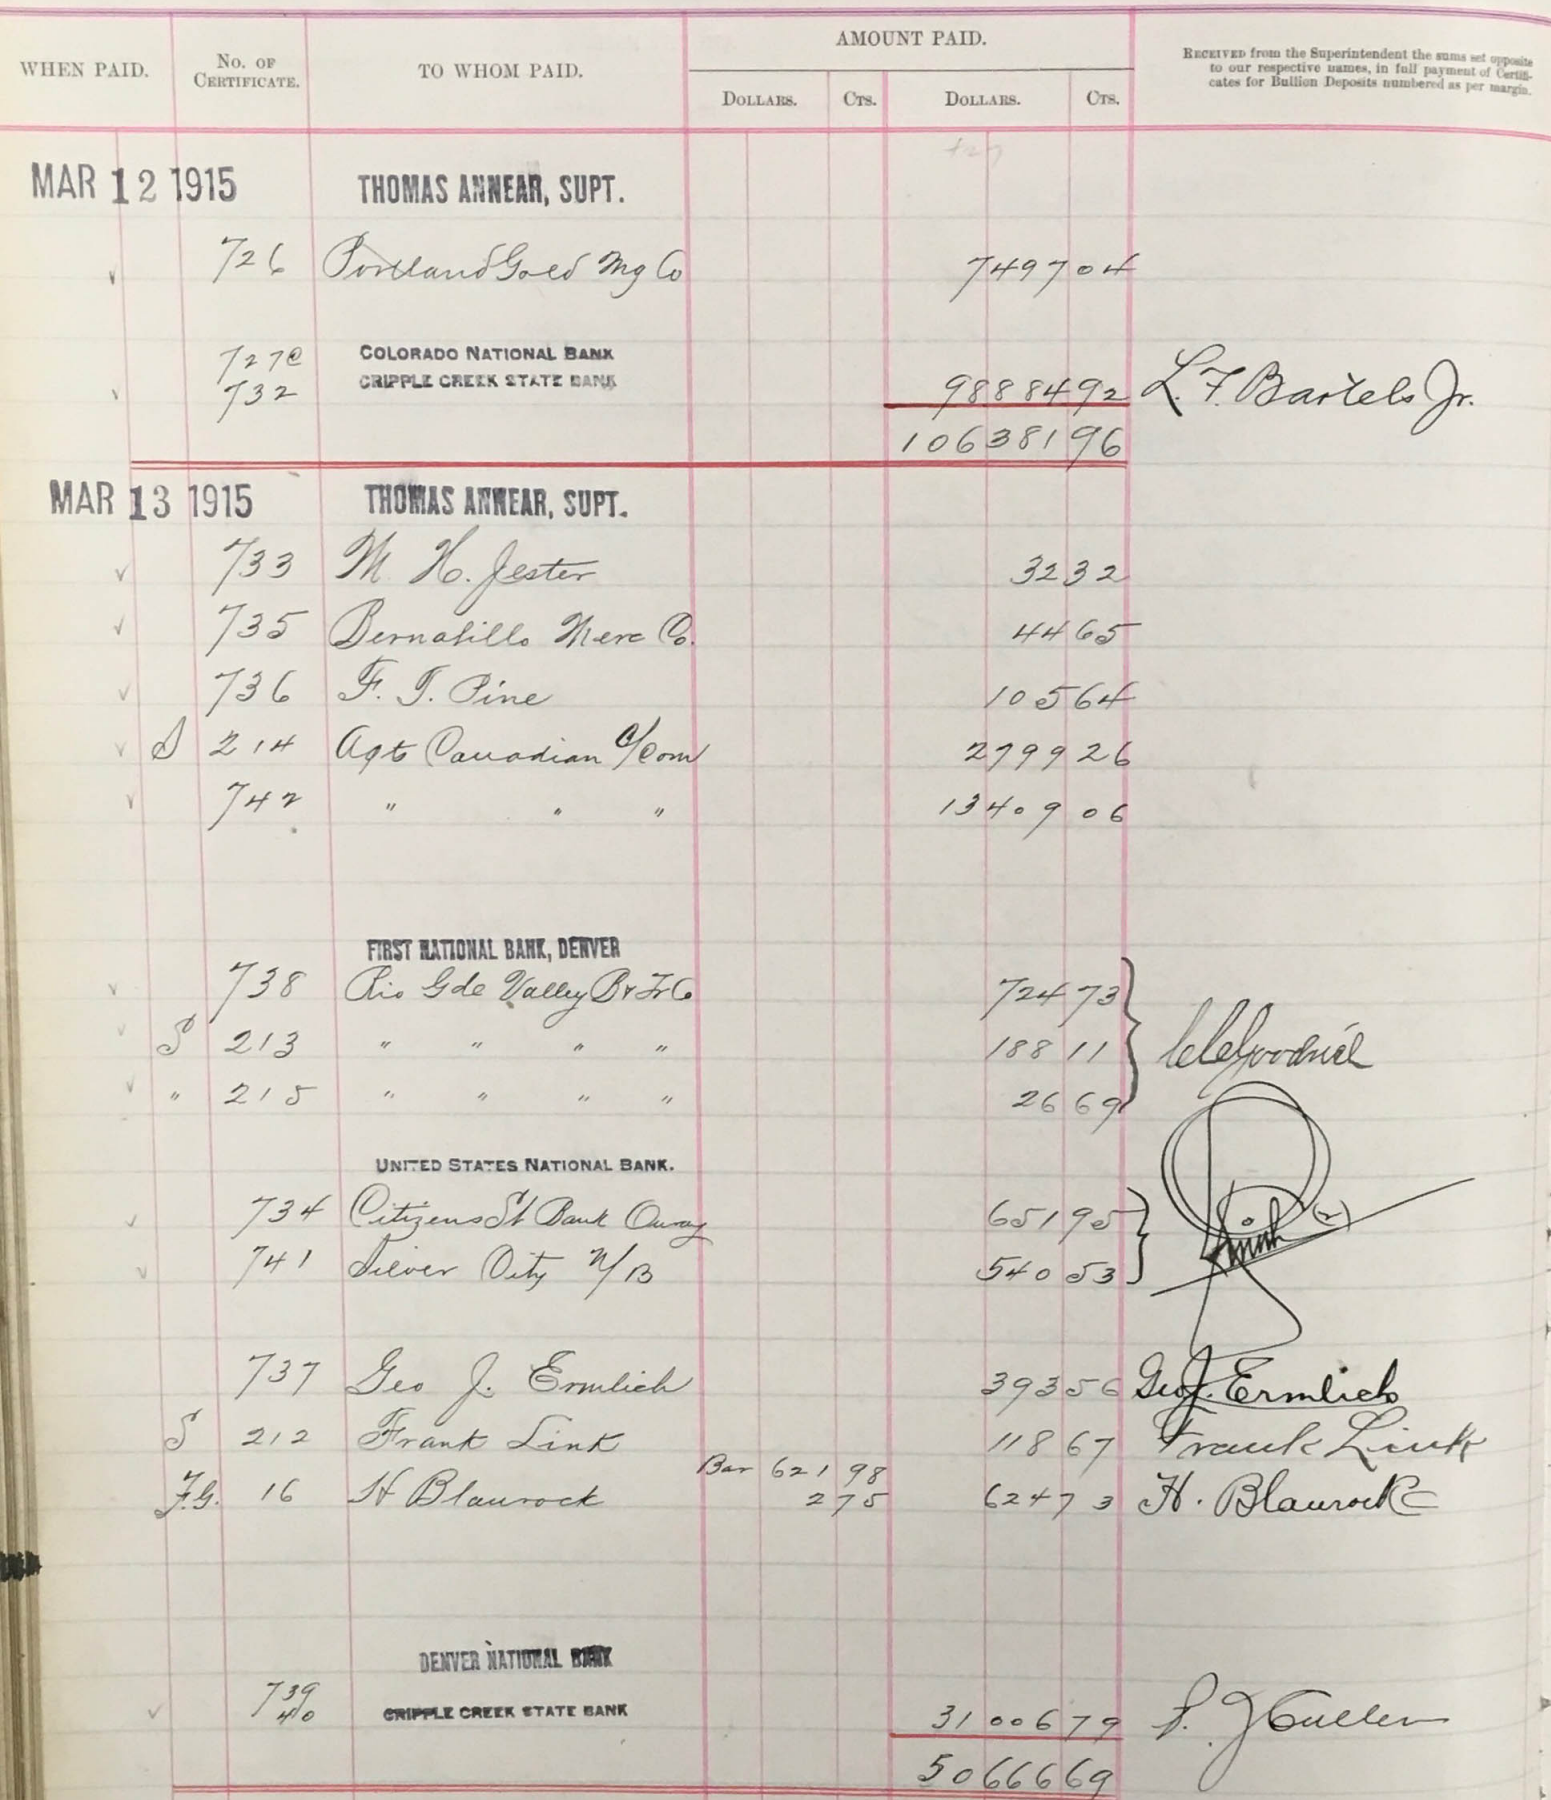 WHEN PAID. No. of Certificate. TO WHOM PAID. AMOUNT PAID. Dollars. Cts. Dollars. Cts.
Received from the Superintendent the sums set opposite
to our respective names, in full payment of Certifi-
cates for Bullion Deposits numbered as per margin.
MAR 12 1915 THOMAS ANNEAR, SUPT.
726 Portland Gold Mg Co 7497 04
727@ COLORADO NATIONAL BANK
732 CRIPPLE CREEK STATE BANK 98884 92 L. F. Bartels Jr.
106381 96
MAR 13 1915 THOMAS ANNEAR, SUPT.
733 M. H. Jester 32 32
735 Bernalillo Merc Co. 44 65
736 F. J. Pine 105 64
S 214 Agts Canadian c/Com 2799 26
742 " " " 13409 06
FIRST NATIONAL BANK, DENVER
738 Rio Gde Valley B & Tr Co 724 73
S 213 " " " " 188 11
" 215 " " " " 26 69
UNITED STATES NATIONAL BANK.
734 Citizens St Bank Ouray 651 95
741 Silver City N/B 540 53
737 Geo J. Ermlich 393 56 Geo J. Ermlich
S 212 Frank Link 118 67 Frank Link
Bar 621 98
F.G. 16 H Blaurock 2 75 624 73 H. Blaurock
DENVER NATIONAL BANK
739
40 CRIPPLE CREEK STATE BANK 31006 79
50666 69